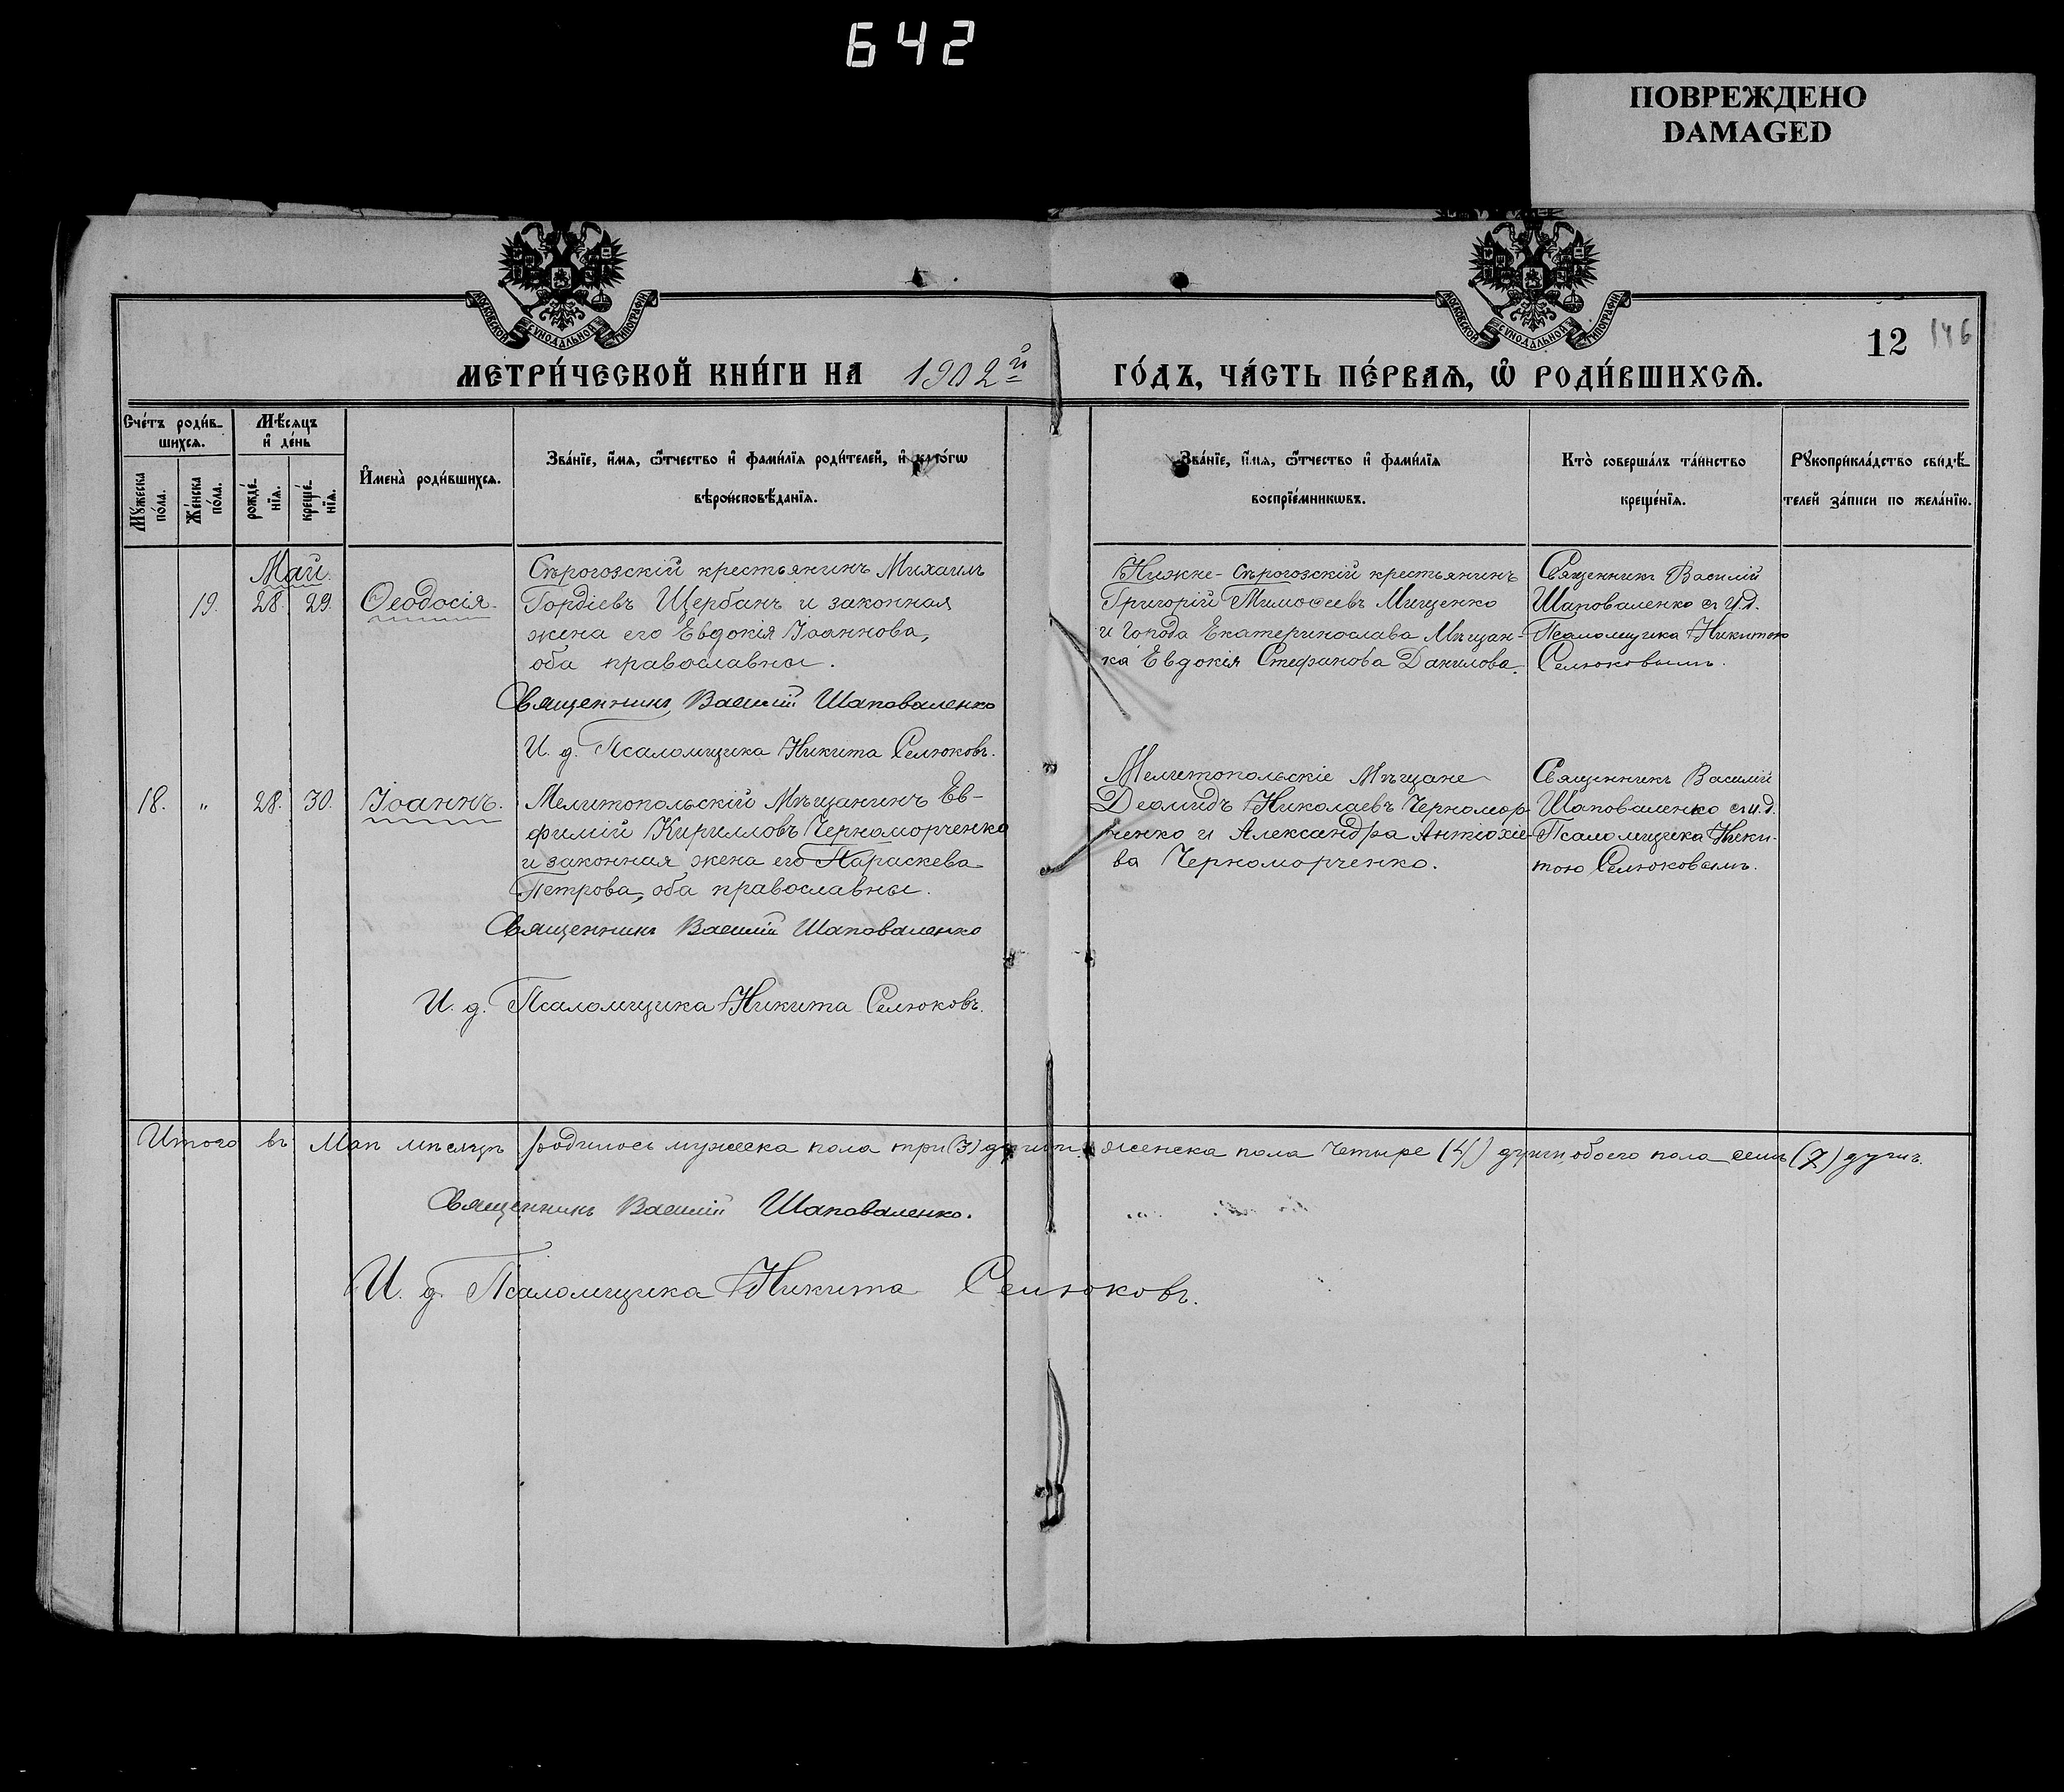 642
ПОВРЕЖДЕНО
DAMAGED
МОСКОВСКОЙ СУНОДАЛЬНОЙ ТИПОГРАФІИ
МОСКОВСКОЙ СУНОДАЛЬНОЙ ТИПОГРАФІИ
12 146
МЕТРИ́ЧЕСКОЙ КНИ́ГИ НА 1902й ГО́ДЪ, ЧА́СТЬ ПЕ́РВАѦ, Ѡ РОДИ́ВШИХСѦ.
Сче́тъ роди́в-
шихсѧ.
Мѣ́сяцъ
и҆ де́нь
Мꙋ́жеска
по́ла.
Же́нска
по́ла.
рожде́-
нїѧ.
креще́-
нїѧ.
И҆мена̀ роди́вшихсѧ.
Зва́нїе, и҆́мѧ, ѻ҆́тчество и҆ фами́лїѧ роди́телей, и҆ како́гѡ
вѣроисповѣ́данїѧ.
Зва́нїе, и҆́мѧ, ѻ҆́тчество и҆ фами́лїѧ
воспрїе́мникѡвъ.
Кто̀ соверша́лъ та́инство
креще́нїѧ.
Рꙋкоприкла́дство свидѣ́-
телей за́писи по жела́нїю.
Май.
19. 28. 29. Ѳеодосія.
Сѣрогозскій крестьянинъ Михаилъ
Гордіевъ Щербанъ и законная
жена его Евдокія Іоаннова,
оба православны.
Священникъ Василій Шаповаленко
И. д. Псаломщика Никита Селюковъ.
Нижне-Сѣрогозскій крестьянинъ
Григорій Тимоѳеевъ Мищенко
и города Екатеринослава Мѣщан-
ка Евдокія Стефанова Данилова.
Священникъ Василій
Шаповаленко съ и.д.
Псаломщика Никитою
Селюковымъ.
18. " 28. 30. Іоаннъ.
Мелитопольскій Мѣщанинъ Ев-
фимій Кирилловъ Черноморченко
и законная жена его Параскева
Петрова, оба православны.
Священникъ Василій Шаповаленко
И. д. Псаломщика Никита Селюковъ.
Мелитопольскіе Мѣщане
Деомидъ Николаевъ Черномор-
ченко и Александра Антіохіе-
ва Черноморченко.
Священникъ Василій
Шаповаленко съ и.д.
Псаломщика Ники-
тою Селюковымъ.
Итого въ Маѣ мѣсяцѣ родилось мужеска пола три (3) души, женска пола четыре (4) души, обоего пола семь (7) душъ.
Священникъ Василій Шаповаленко.
И. д. Псаломщика Никита Селюковъ.